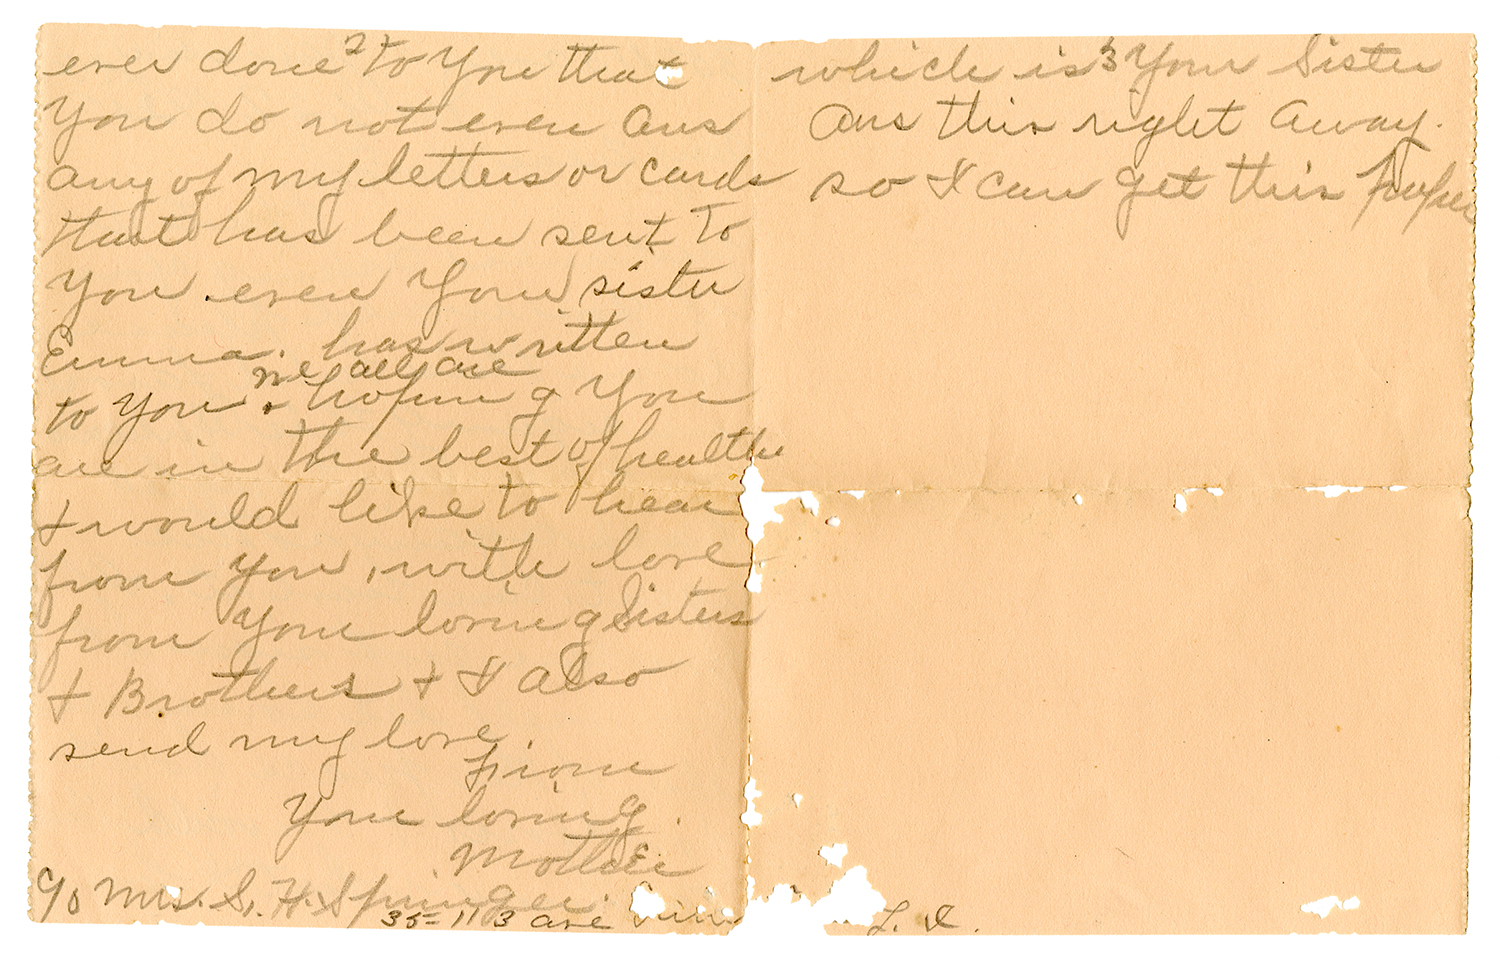 2
ever done to You that
You do not even Ans
any of my letters or cards
that has been sent To
You even Your sister
Emma. has written
we all are
to You. hoping You
are in the best of health
+ would like to hear
from you, with love
from Your loving Sisters
+ Brothers + I also
send my love.
From
Your loving.
Mother
c/o Mrs. S. H. Springer.
35=113 ave
3
which is Your Sister
Ans this right away.
so I can get this paper
L. I.